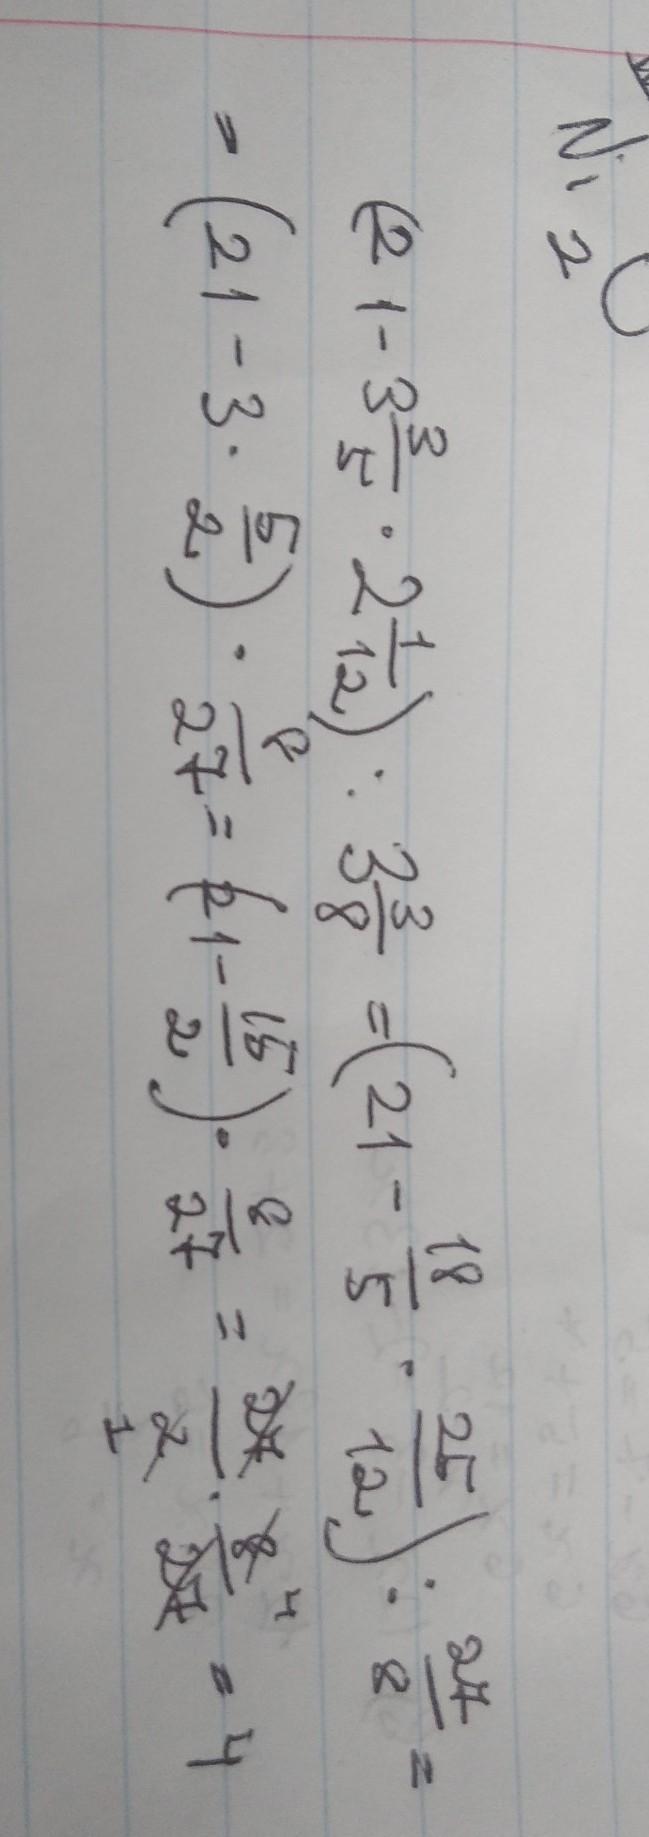 № 2
(21 - 3 3/5 · 2 1/12) : 3 3/8 = (21 - 18/5 · 25/12) : 27/8 =
= (21 - 3 · 5/2) · 8/27 = (21 - 15/2) · 8/27 = 27/2 1 · 8 4/27 = 4